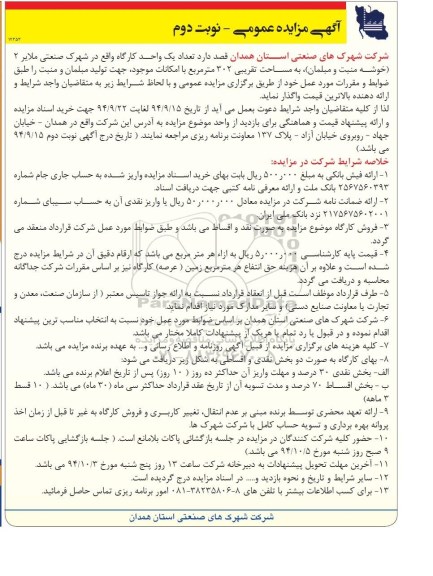 آگهی مزایده عمومی - نوبت دوم
شرکت شهرک های صنعتی استان همدان قصد دارد تعداد یک واحد کارگاه واقع در شهرک صنعتی ملایر ۲
(خوشه منبت و مبلمان)، به مساحت تقریبی ۳۰۲ مترمربع با امکانات موجود، جهت تولید مبلمان و منبت را طبق
ضوابط و مقررات مورد عمل خود از طریق برگزاری مزایده عمومی و با لحاظ شرایط زیر به متقاضیان واجد شرایط و
ارائه دهنده بالاترین قیمت واگذار نماید.
لذا از کلیه متقاضیان واجد شرایط دعوت بعمل می آید از تاریخ ۹۴/۹/۱۵ لغایت ۹۴/۹/۲۲ جهت خرید اسناد مزایده
و ارائه پیشنهاد قیمت و هماهنگی برای بازدید از واحد موضوع مزایده به آدرس این شرکت واقع در همدان - خیابان
جهاد - روبروی خیابان آزاد - پلاک ۱۳۷ معاونت برنامه ریزی مراجعه نمایند. ( تاریخ درج آگهی نوبت دوم ۹۴/۹/۱۵
می باشد.)
خلاصه شرایط شرکت در مزایده:
۱- ارائه فیش بانکی به مبلغ ۵۰۰ر۰۰۰ ریال بابت بهای خرید اسناد مزایده واریز شده به حساب جاری جام شماره
۲۵۶۷۵۶۰۳۹۳ بانک ملت و ارائه معرفی نامه کتبی جهت دریافت اسناد.
۲- ارائه ضمانت نامه شرکت در مزایده معادل ۵۰ر۰۰۰ر۰۰۰ ریال یا واریز نقدی آن به حساب سیبای شماره
۲۱۷۵۶۷۵۶۰۲۰۰۱ نزد بانک ملی ایران
۳- فروش کارگاه موضوع مزایده به صورت نقد و اقساط می باشد و طبق ضوابط مورد عمل شرکت قرارداد منعقد می
گردد.
۴- قیمت پایه کارشناسی ۵ر۰۰۰ر۰۰۰ ریال به ازاء هر متر مربع می باشد که ارقام دقیق آن در شرایط مزایده درج
شده است و علاوه بر آن هزینه حق انتفاع هر مترمربع زمین ( عرصه) کارگاه نیز بر اساس مقررات شرکت جداگانه
محاسبه و دریافت می گردد.
۵- طرف قرارداد موظف است قبل از انعقاد قرارداد نسبت به ارائه جواز تاسیس معتبر ( از سازمان صنعت، معدن و
تجارت یا معاونت صنایع دستی) و سایر مدارک مورد نیاز اقدام نماید.
۶- شرکت شهرک های صنعتی استان همدان بر اساس ضوابط مورد عمل خود نسبت به انتخاب مناسب ترین پیشنهاد
اقدام نموده و در قبول یا رد تمام یا هریک از پیشنهادات کاملا مختار می باشد.
۷- کلیه هزینه های برگزاری مزایده از قبیل آگهی روزنامه و اطلاع رسانی و.. به عهده برنده مزایده می باشد.
۸- بهای کارگاه به صورت دو بخش نقدی و اقساطی به شکل زیر دریافت می شود:
الف- بخش نقدی ۳۰ درصد و مهلت واریز آن حداکثر ده روز ( ۱۰ روز) پس از تاریخ اعلام برنده می باشد.
ب - بخش اقساط ۷۰ درصد و مدت تسویه آن از تاریخ عقد قرارداد حداکثر سی ماه (۳۰ ماه) می باشد. ( ۱۰ قسط
۳ ماهه)
۹- ارائه تعهد محضری توسط برنده مبنی بر عدم انتقال، تغییر کاربری و فروش کارگاه به غیر تا قبل از زمان اخذ
پروانه بهره برداری و تسویه حساب کامل با شرکت شهرک ها.
۱۰- حضور کلیه شرکت کنندگان در مزایده در جلسه بازگشائی پاکات بلامانع است. ( جلسه بازگشایی پاکات ساعت
۹ صبح روز شنبه مورخ ۹۴/۱۰/۵ می باشد )
۱۱- آخرین مهلت تحویل پیشنهادات به دبیرخانه شرکت ساعت ۱۳ روز پنج شنبه مورخ ۹۴/۱۰/۳ می باشد.
۱۲- سایر شرایط و تاریخ و نحوه بازدید و.... در اسناد مزایده درج گردیده است.
۱۳- برای کسب اطلاعات بیشتر با تلفن های ۸-۳۸۲۳۵۸۰۶-۰۸۱ امور برنامه ریزی تماس حاصل فرمائید.
شرکت شهرک های صنعتی استان همدان